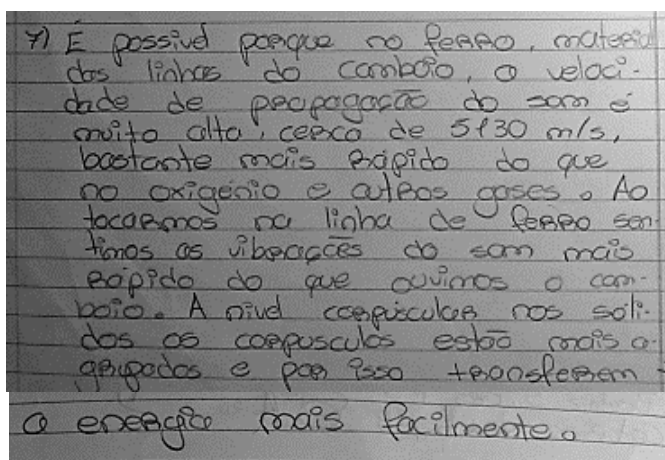 7) É possivel porque no ferro, material
das linhas do comboio, a veloci-
dade de propagação do som é
muito alta, cerca de 5130 m/s,
bastante mais rápido do que
no oxigénio e outros gases. Ao
tocarmos na linha de ferro sen-
timos as vibrações do som mais
rápido do que ouvimos o com-
boio. A nível corpúscular nos sóli-
dos os corpusculos estão mais a-
grupados e por isso transferem
a energia mais facilmente.